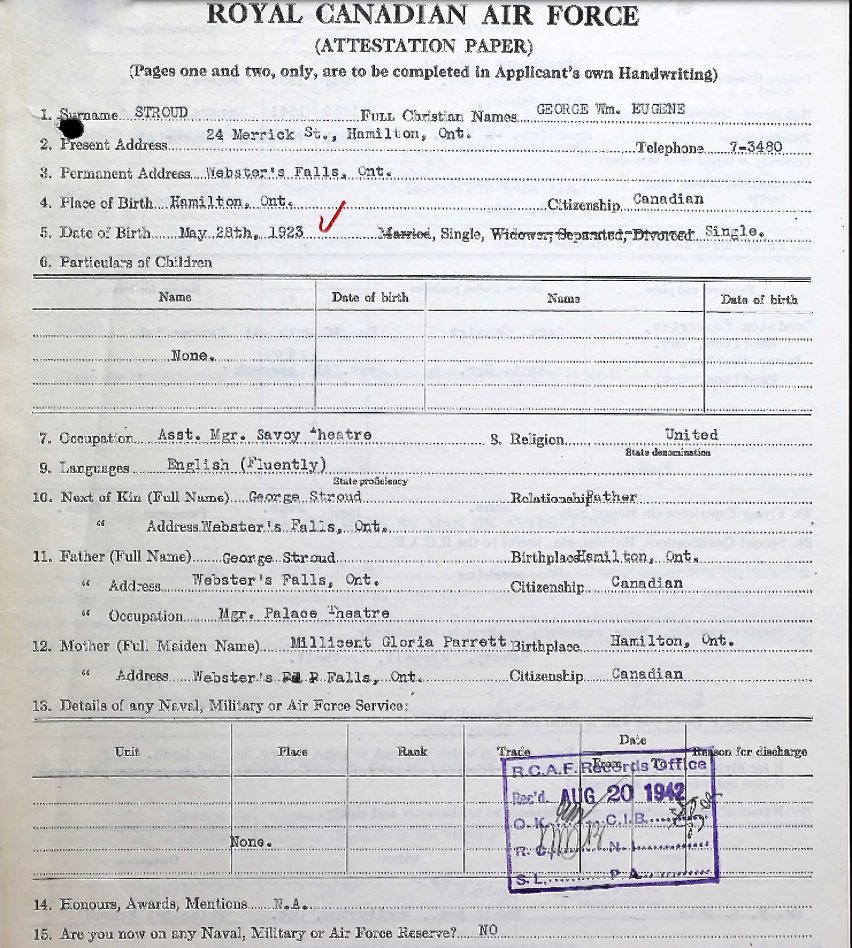 ROYAL CANADIAN AIR FORCE
(ATTESTATION PAPER)
(Pages one and two, only, are to be completed in Applicant's own Handwriting)
1. Surname STROUD Full Christian Names GEORGE Wm. EUGENE
2. Present Address 24 Merrick St., Hamilton, Ont. Telephone 7-3480
3. Permanent Address Webster's Falls, Ont.
4. Place of Birth Hamilton, Ont. Citizenship Canadian
5. Date of Birth May 28th, 1923 Married, Single, Widower, Separated, Divorced Single.
6. Particulars of Children
Name Date of birth Name Date of birth
None.
7. Occupation Asst. Mgr. Savoy Theatre 8. Religion United
State denomination
9. Languages English (Fluently)
State proficiency
10. Next of Kin (Full Name) George Stroud Relationship Father
" Address Webster's Falls, Ont.
11. Father (Full Name) George Stroud Birthplace Hamilton, Ont.
" Address Webster's Falls, Ont. Citizenship Canadian
" Occupation Mgr. Palace Theatre
12. Mother (Full Maiden Name) Millicent Gloria Parrett Birthplace Hamilton, Ont.
" Address Webster's Falls, Ont. Citizenship Canadian
13. Details of any Naval, Military or Air Force Service:
Unit Place Rank Trade Date Reason for discharge
From To
None.
R.C.A.F. Records Office
Rec'd. AUG 20 1942
O.K. C.I.B.
R.C. N.I.
S.L. P.A.
14. Honours, Awards, Mentions N.A.
15. Are you now on any Naval, Military or Air Force Reserve? NO